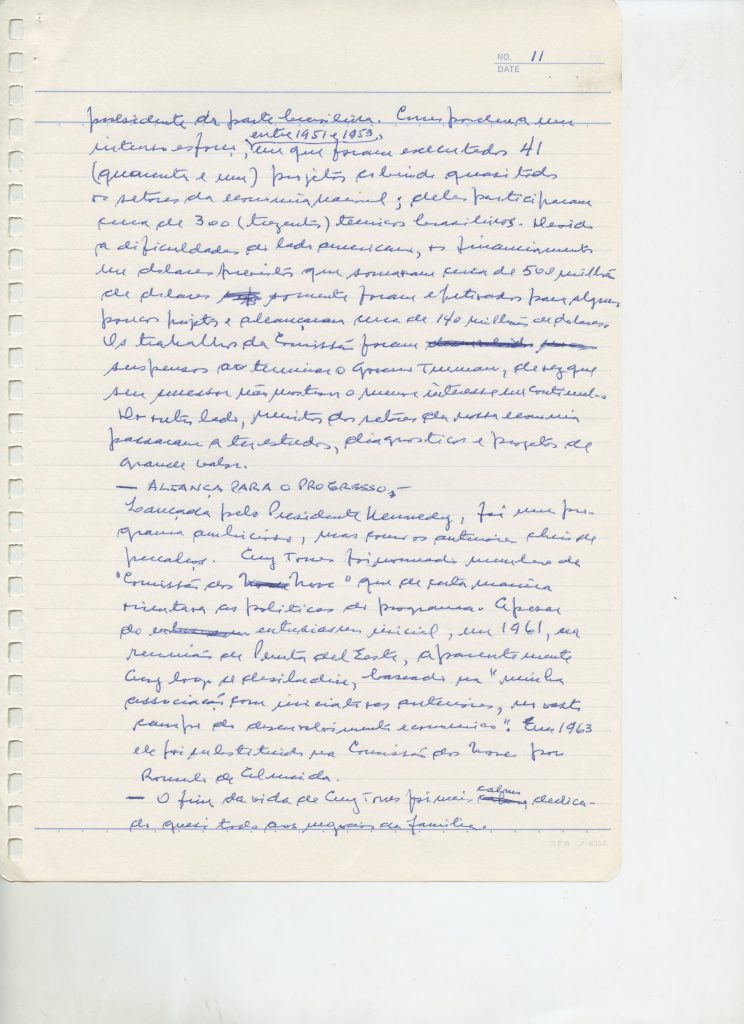 NO. 11
DATE
presidente da parte brasileira. Correspondeu a um
entre 1951 e 1953,
intenso esforço, em que foram executados 41
(quarenta e um) projetos cobrindo quasi todos
os setores da economia nacional; deles participaram
cerca de 300 (trezentos) tecnicos brasileiros. Devido
a dificuldades do lado americano, os financiamentos
em dolares previstos que somavam cerca de 500 milhões
de dolares somente foram efetivados para alguns
poucos projetos e alcançaram cerca de 140 milhões de dolares.
Os trabalhos da Comissão foram
suspensos ao terminar o Governo Truman, de vez que
seu sucessor não mostrou o menor interesse em continua-
Do outro lado, muitos dos setores da nossa economia
passaram a ter estudos, diagnosticos e projetos de
grande valor.
— ALIANÇA PARA O PROGRESSO,-
Lançada pelo Presidente Kennedy, foi um pro-
grama ambicioso, mas como os anteriores cheio de
percalços. Ary Torres foi nomeado membro da
"Comissão dos Nove" que de certa maneira
orientava as politicas do programa. Apesar
do entusiasmo inicial, em 1961, na
reunião de Punta del Este, aparentemente
Ary logo se desiludiu, baseado na "minha
associação com iniciativas anteriores, no vasto
campo do desenvolvimento economico". Em 1963
ele foi substituido na Comissão dos Nove por
Romulo de Almeida.
— O fim da vida de Ary Torres foi mais calmo, dedica-
do quasi todo aos negocios da familia.